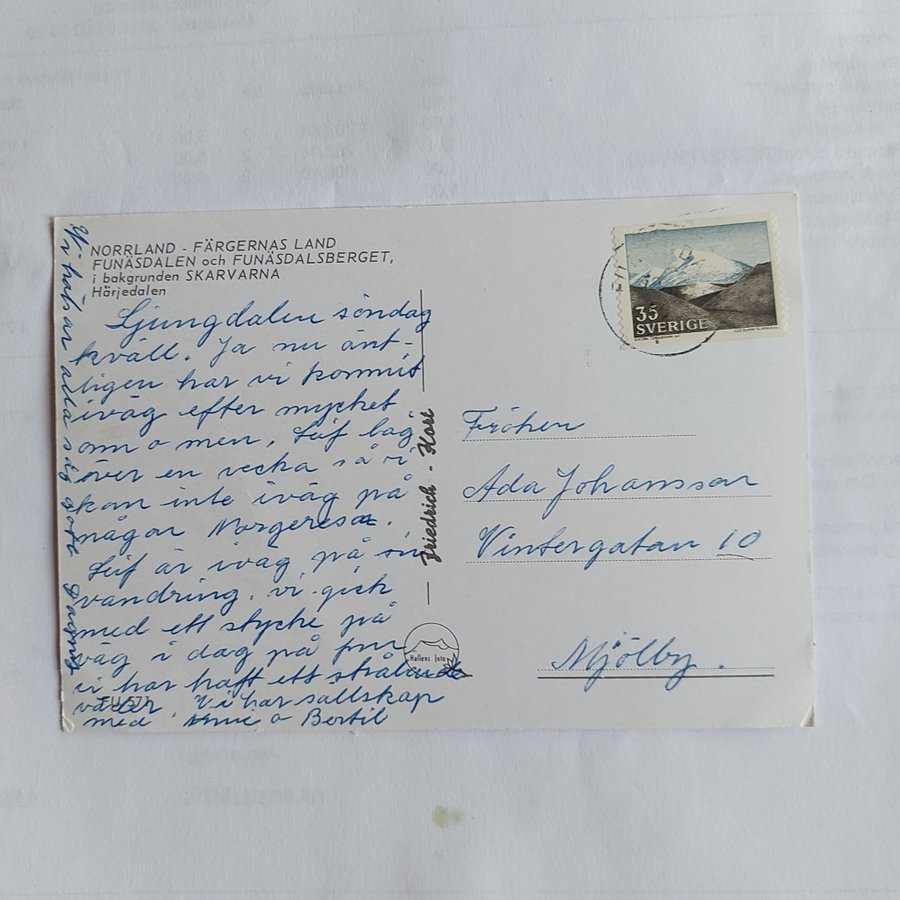 NORRLAND - FÄRGERNAS LAND
FUNÄSDALEN och FUNÄSDALSBERGET,
i bakgrunden SKARVARNA
Härjedalen
Ljungdalen söndag
kväll. Ja nu änt-
ligen har vi kommit
iväg efter mycket
om o men. Leif låg
över en vecka så vi
kan inte iväg på
någar Norgeresa.
Leif är iväg på sin
vandring. vi gick
med ett stycke på
väg i dag på
vi har haft ett strålande
väder. Vi har sällskap
med o Bertil
Vi hälsar alla så gott Dagny
FU 571
Friedrich - Kort
Hallens foto
35
SVERIGE
Fröken
Ada Johansson
Vintergatan 10
Mjölby.